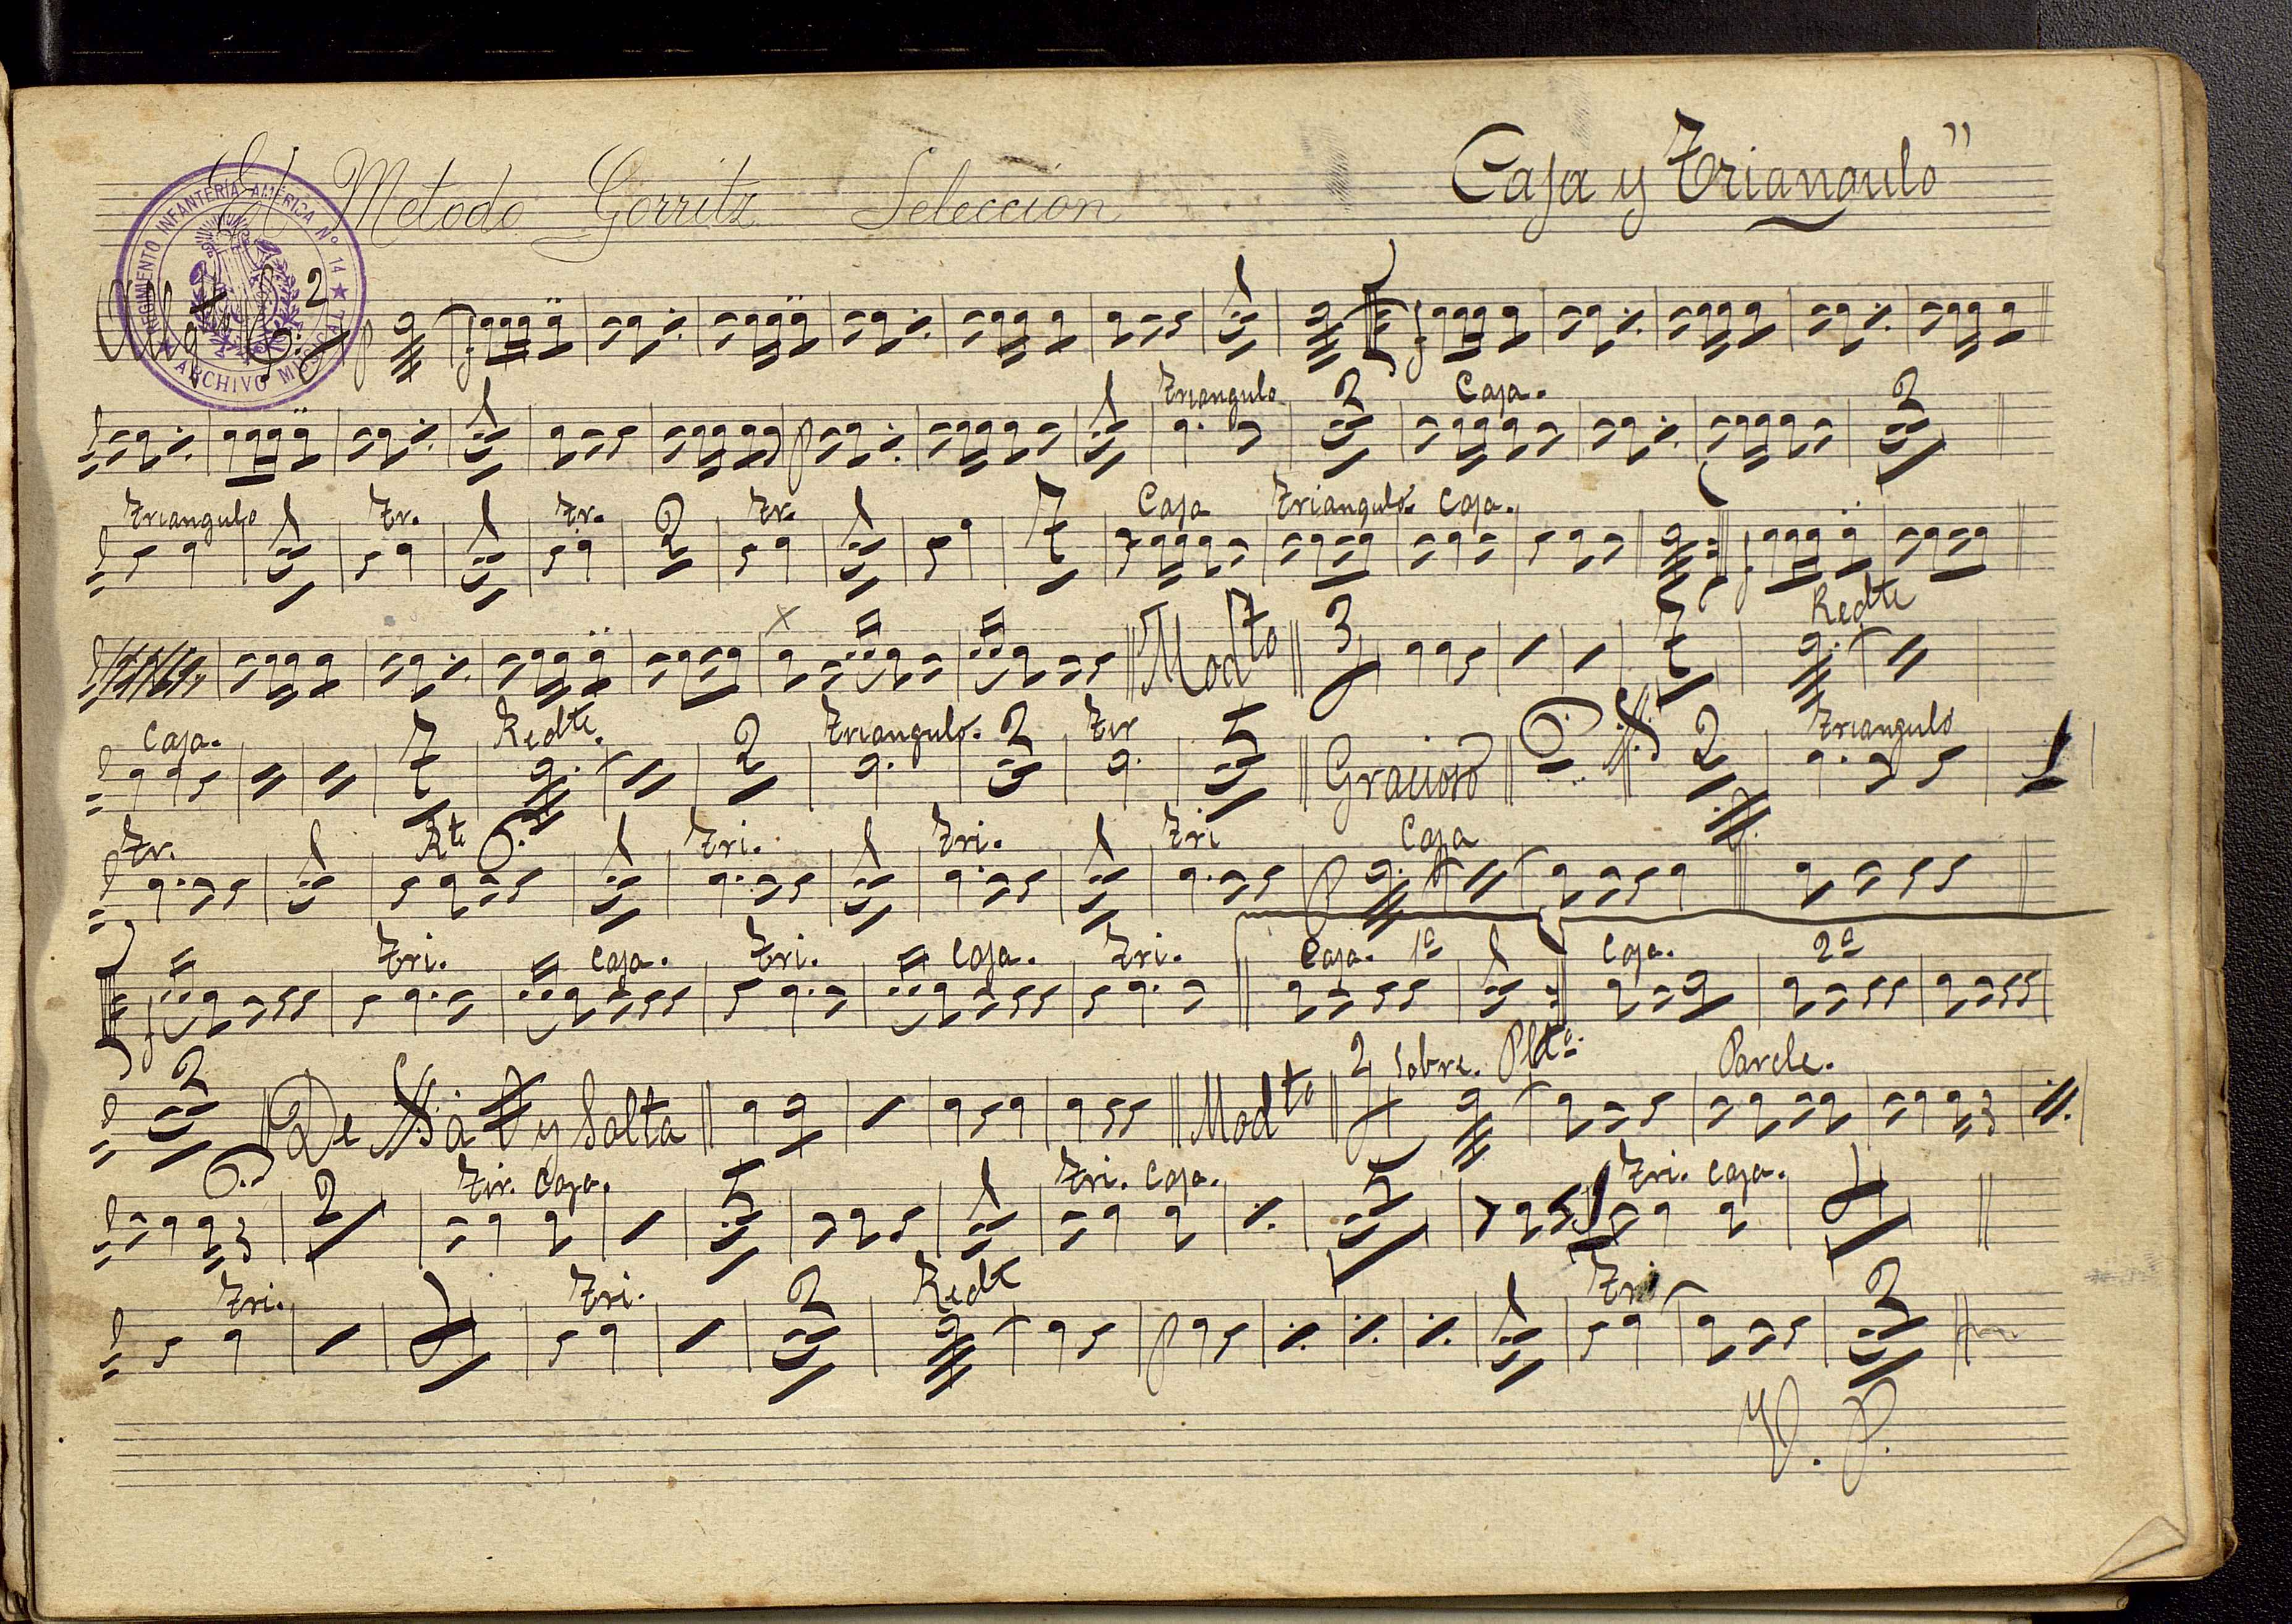 El Metodo Gorritz Seleccion Caja y Triangulo"
REGIMIENTO INFANTERÍA AMÉRICA Nº 14
ARCHIVO MUSICAL
2
Triangulo 2 Caja. 2
Triangulo Tr. Tr. 2 Tr. 7 Caja Triangulo. Caja.
Modto 3 7 Redte
Caja. 7 Redte. 2 Triangulo. 2 Tir 5 Gracioso 2 Triangulo 1
Tr. Rt Tri. Tri. Tri Caja
Tri. Caja. Tri. Caja. Tri. Caja. 1ª Caja. 2ª
2 De a y Salta Modto 2 Sobre. Parche.
2 Tir. Caja. 5 Tri. Caja. 5 Tri. Caja.
Tri. Tri. 2 Redt Tri 3
V. P.